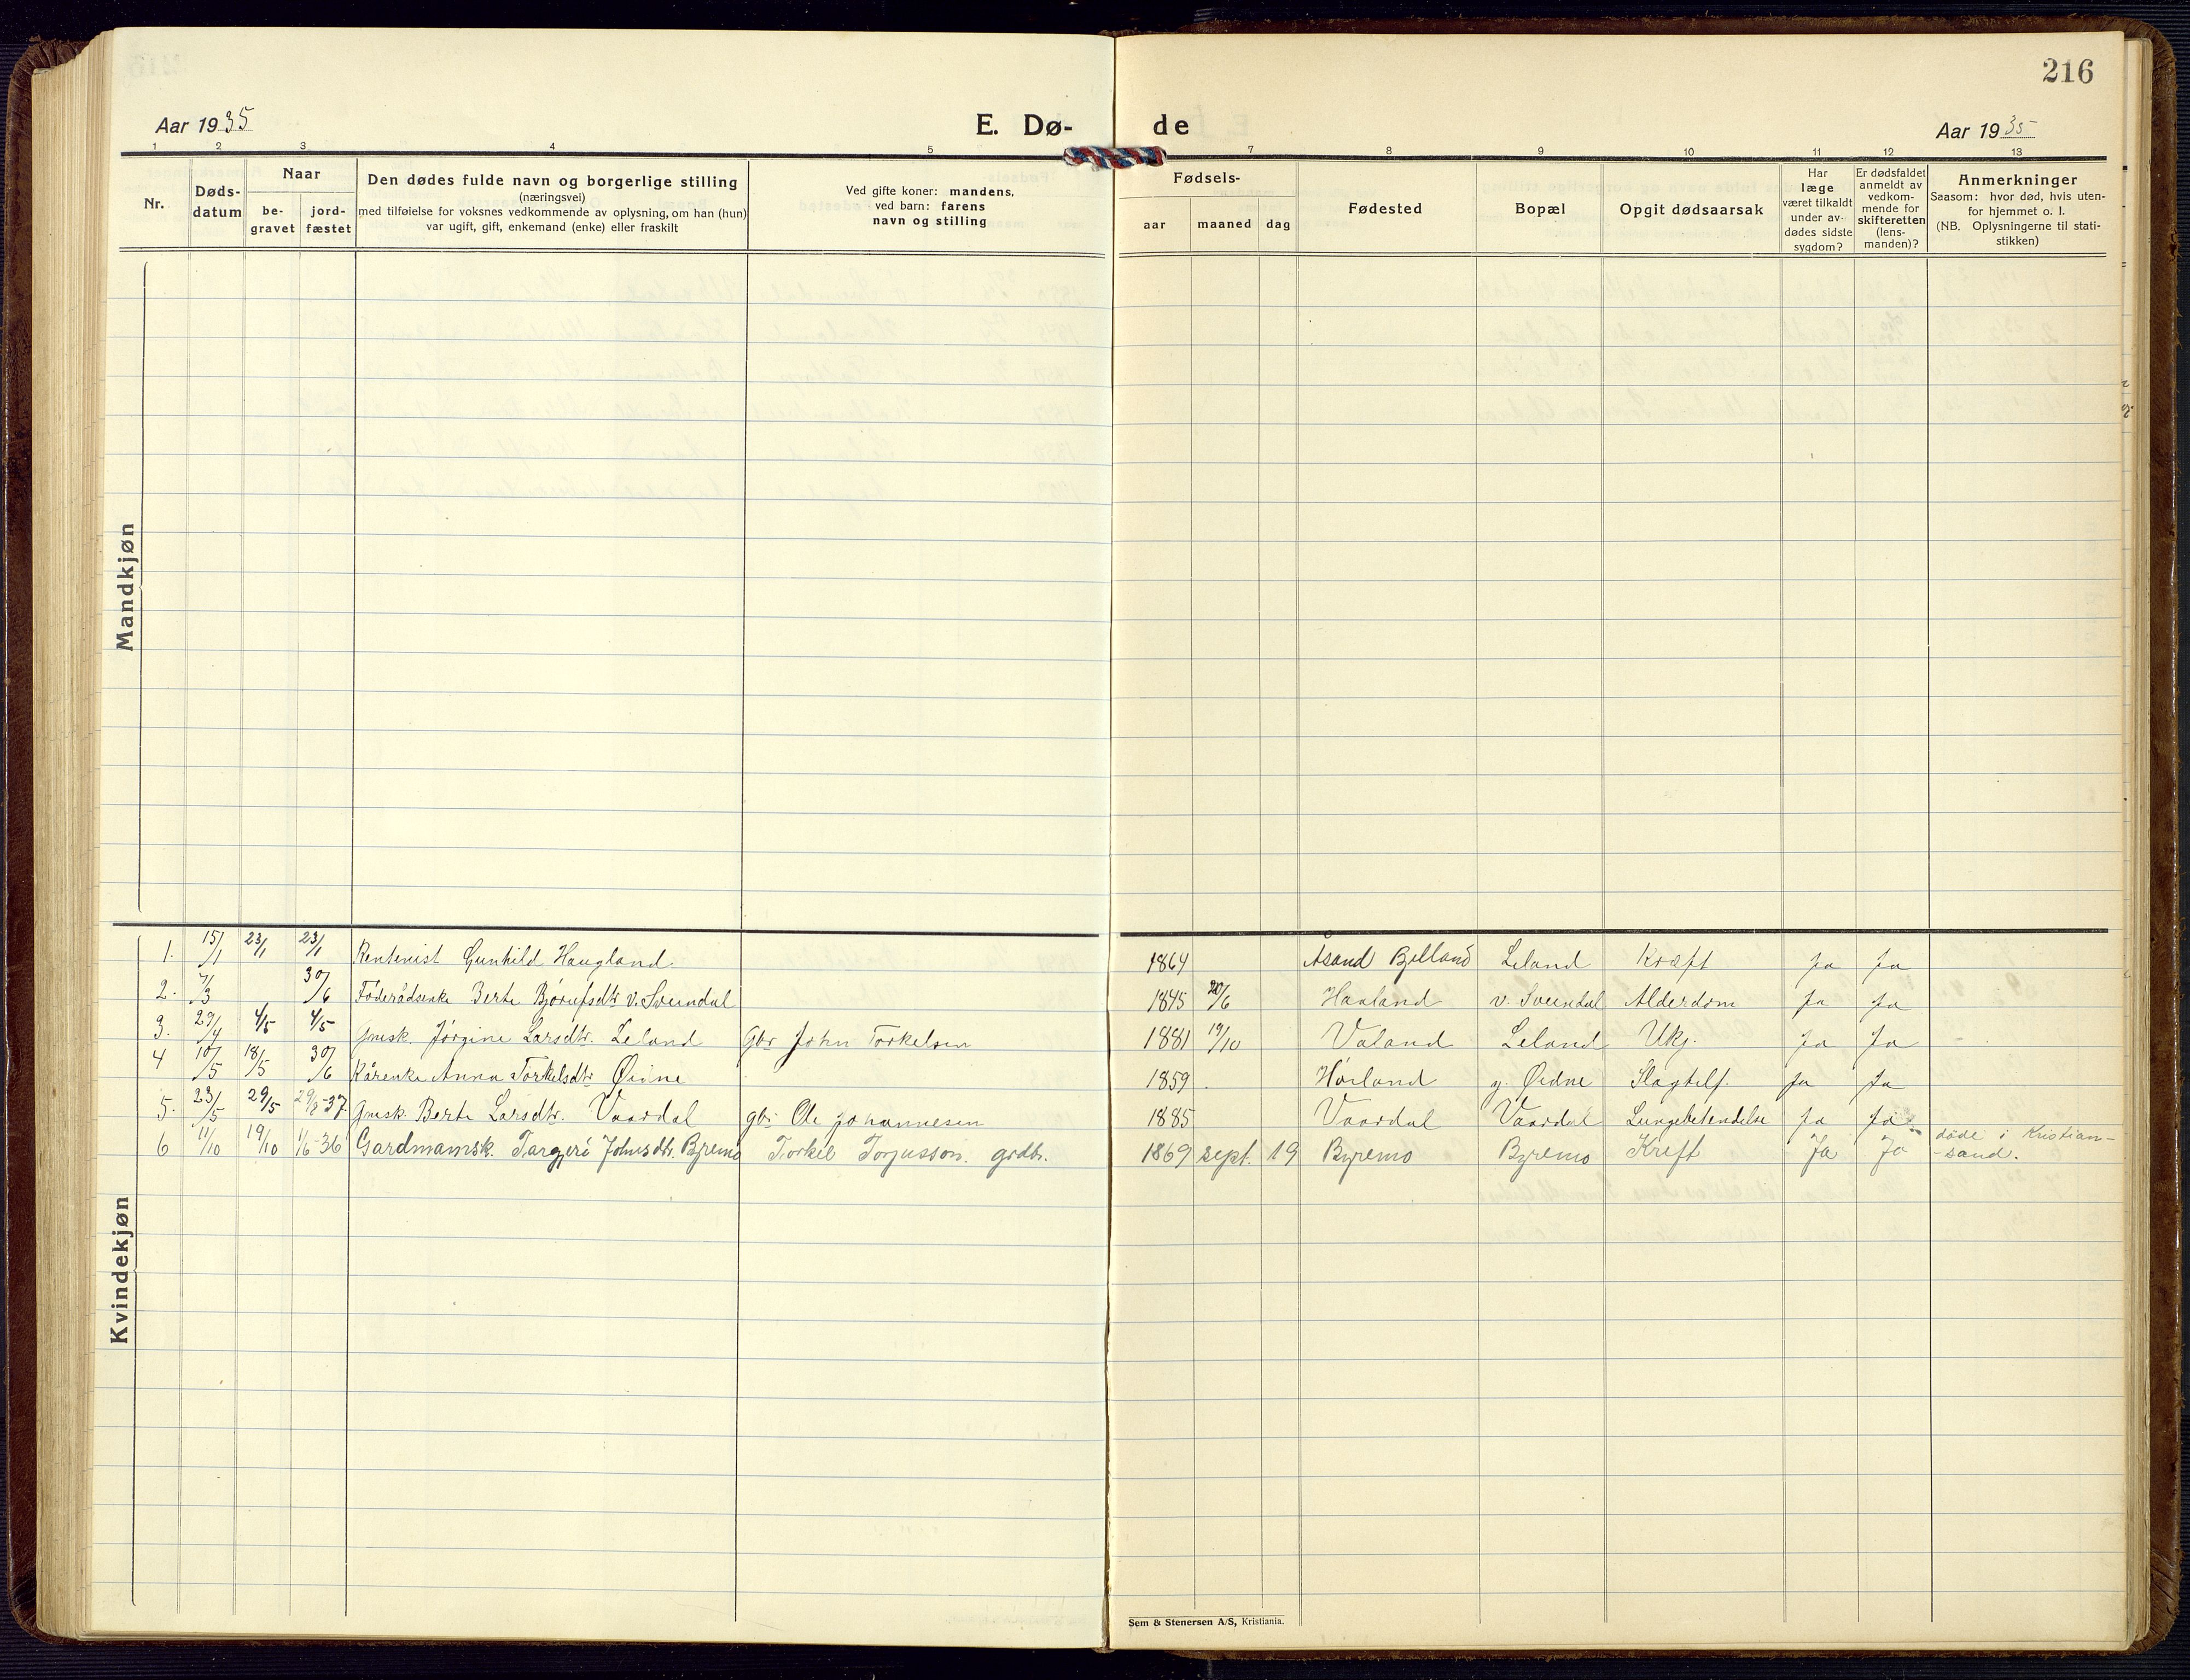 216
Aar 1935 E. Dø- de Aar 1935
1 2 3 4 5 7 8 9 10 11 12 13
Nr.
Døds-
datum
Naar
be-
gravet
jord-
fæstet
Den dødes fulde navn og borgerlige stilling
(næringsvei)
med tilføielse for voksnes vedkommende av oplysning, om han (hun)
var ugift, gift, enkemand (enke) eller fraskilt
Ved gifte koner: mandens,
ved barn: farens
navn og stilling
Fødsels-
aar maaned dag
Fødested
Bopæl
Opgit dødsaarsak
Har
læge
været tilkaldt
under av-
dødes sidste
sygdom?
Er dødsfaldet
anmeldt av
vedkom-
mende for
skifteretten
(lens-
manden)?
Anmerkninger
Saasom: hvor død, hvis uten-
for hjemmet o. l.
(NB. Oplysningerne til stati-
stikken)
Mandkjøn
Kvindekjøn
1. 15/1 23/1 23/1 Rentenist Gunhild Haugland. 1864 Åsand Bjelland Leland Kræft Ja Ja
2. 7/3 30/6 Föderådsenke Berte Bjørufsdtr v. Sveindal 1845 20/6 Haaland v. Sveindal Alderdom Ja Ja
3. 29/4 4/5 4/5 Gmsk. Jörgine Larsdtr. Leland Gbr John Torkelsen 1881 19/10 Valand Leland Ukj. Ja Ja
4 10/5 18/5 30/6 Kårenke Anna Torkelsdtr Øidne 1859 Høiland y. Øidne Slagtilf. Ja Ja
5. 23/5 29/5 29/8-37 Gmsk. Berte Larsdtr. Vaardal gbr. Ole Johannesen 1885 Vaardal Vaardal Lungebetendelse Ja Ja
6 11/10 19/10 1/6-36 Gardmannsk. Targjerd Johnsdtr. Byremo Torkel Torjusson. grdbr. 1869 sept. 19 Byremo Byremo Kreft Ja Ja døde i Kristian-
-sand.
Sem & Stenersen A/S, Kristiania.